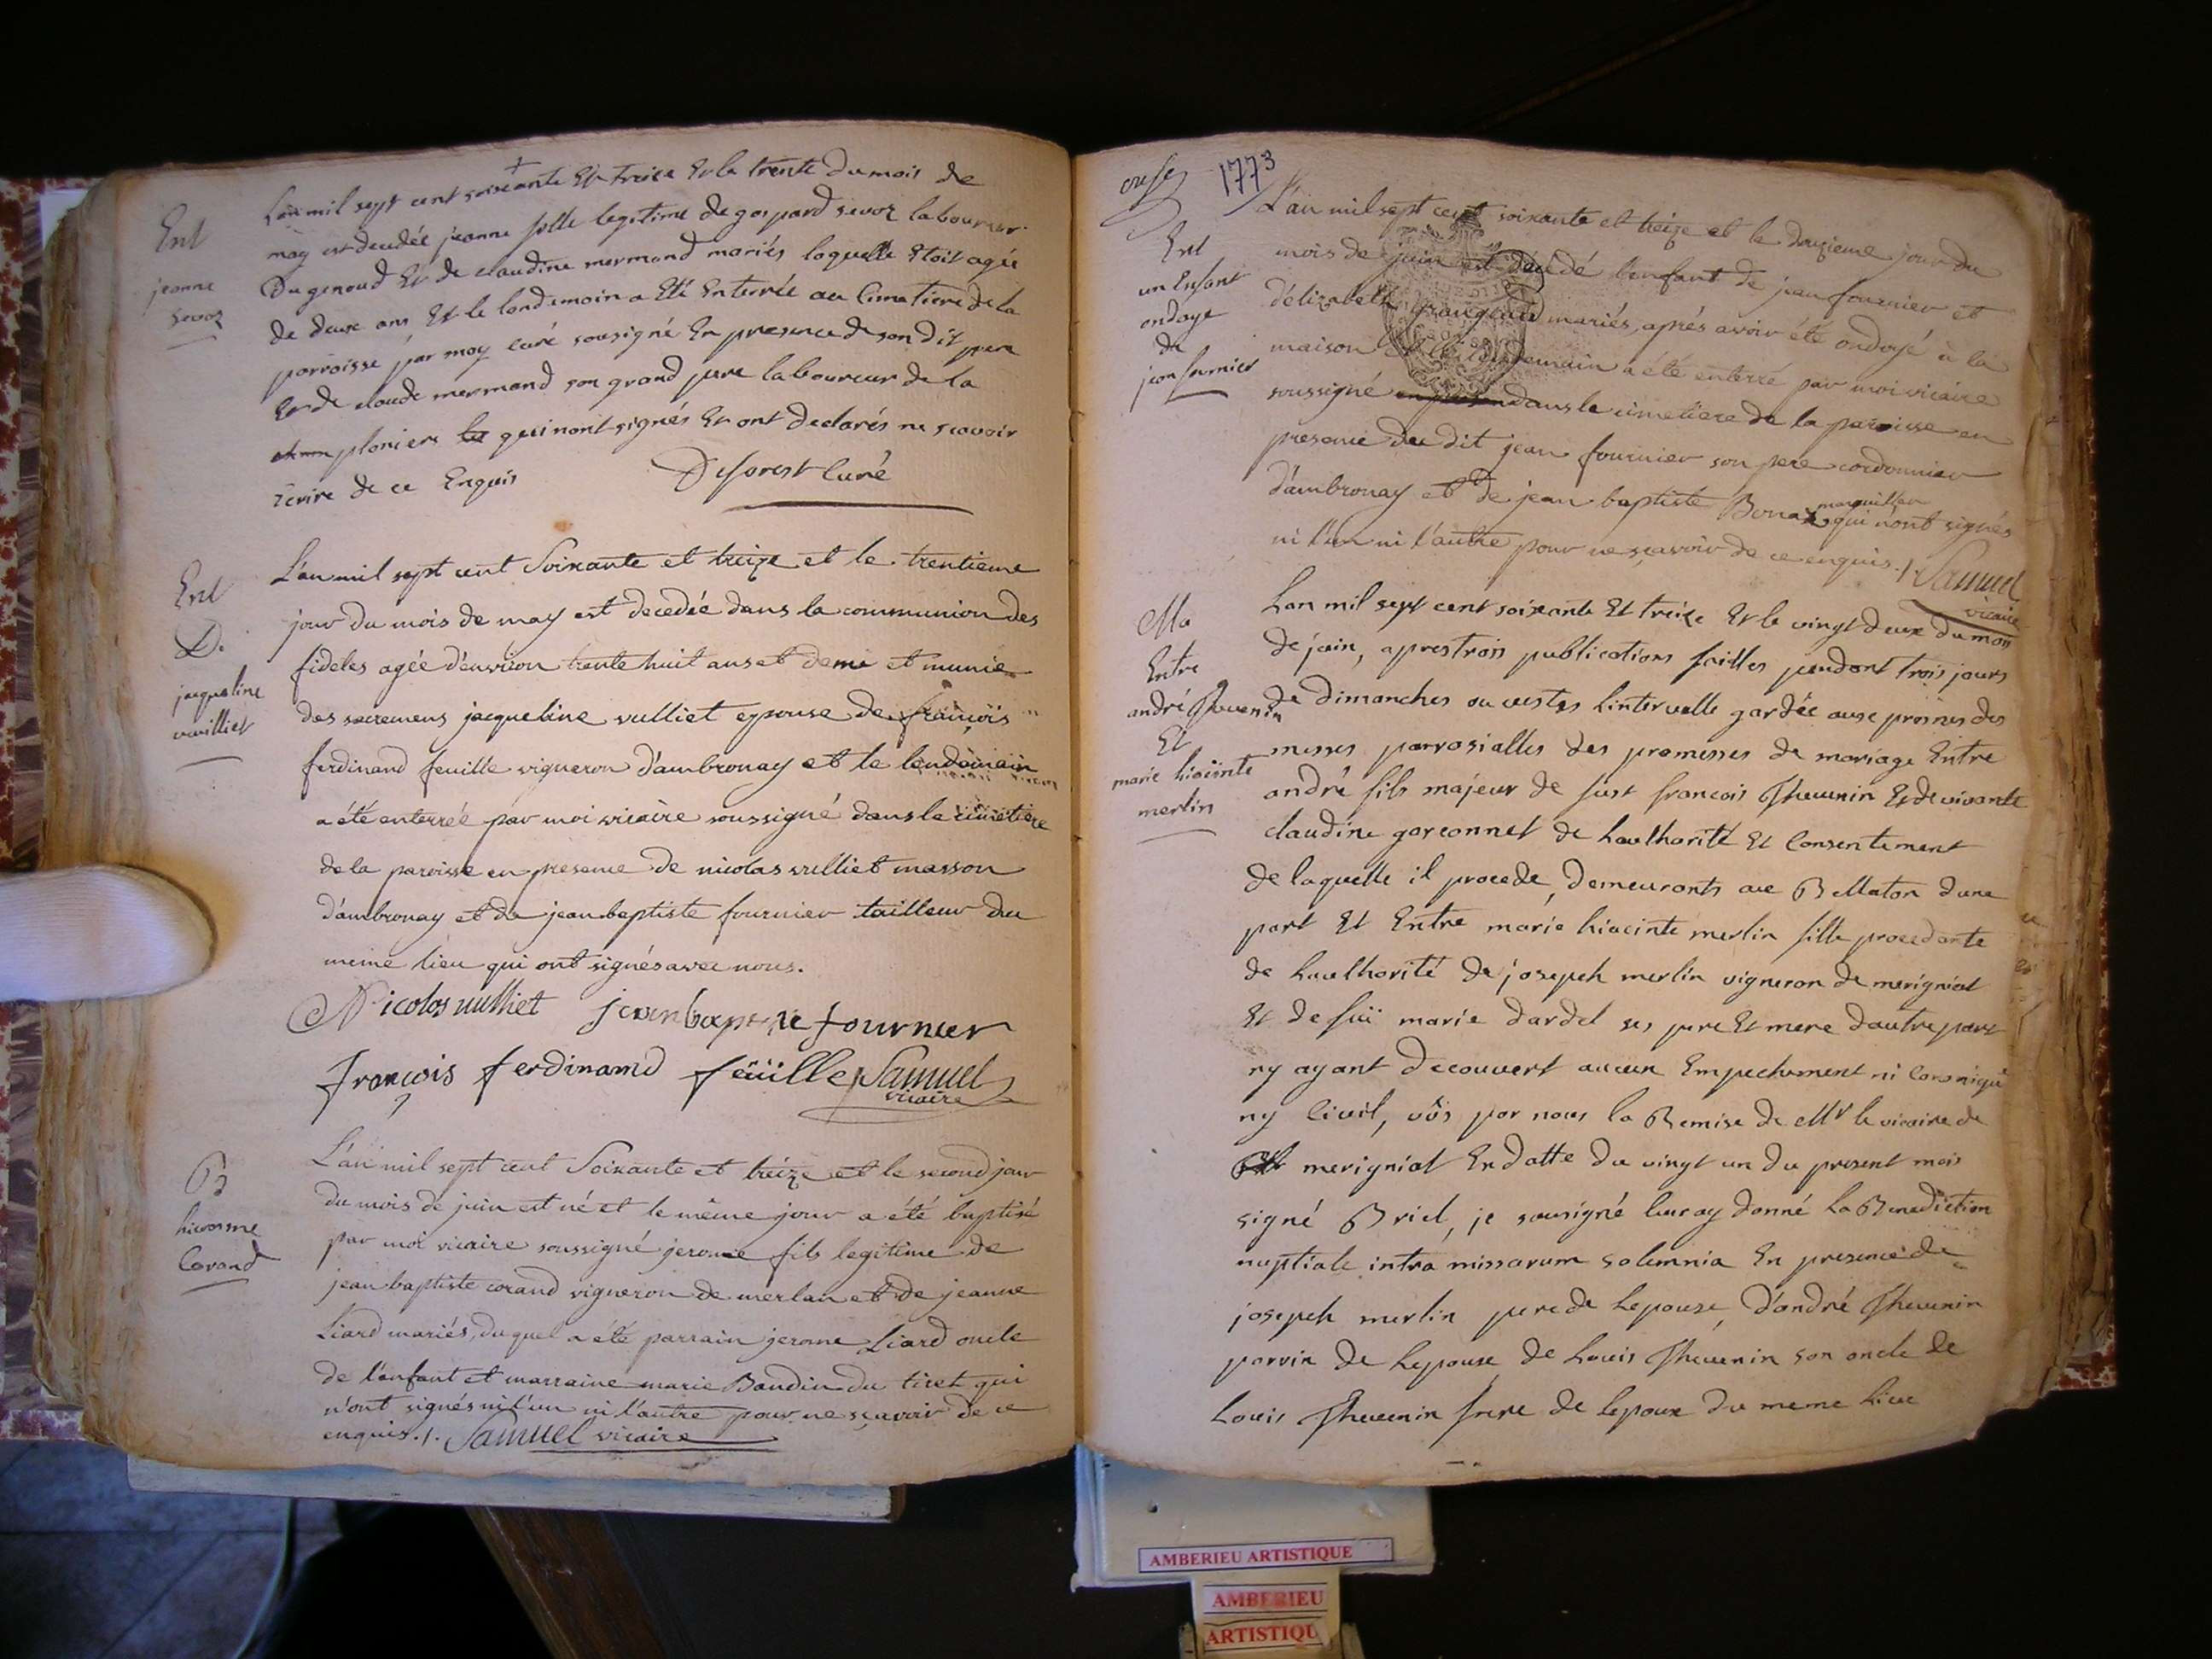 Ent
jeanne
sevoz
L'an mil sept cent soixante Et treize Et le trente du mois de
may est decedée jeanne fille legitime de gaspard sevoz laboureur
Du genoud Et de claudine mermand mariés laquelle Etoit agée
de deux ans Et le lendemain a Eté Enterrée au Cimetiere de la
parroisse par moy curé sousigné En presence de son dit pere
Et de claude mermand son grand pere laboureur de la
ploniere qui nont signés Et ont declarés ne scavoir
Ecrire de ce Enquis Deforest Curé
Ent
De
jacqueline
vuilliet
L'an mil sept cent Soixante et treize et le trentieme
jour du mois de may est decedée dans la communion des
fideles agée d'environ trente huit ans et demi et munie
des sacremens jacqueline vulliet epouse de françois
ferdinand feuille vigneron d'ambronay et le lendemain
a été enterrée par moi vicaire soussigné dans le cimetiere
de la paroisse en presence de nicolas vulliet masson
d'ambronay et de jean baptiste fournier tailleur du
meme lieu qui ont signés avec nous.
Nicolos vulliet jean baptiste fournier
François ferdinamd feüille Samuel
vicaire
B
hierosme
Corand
L'an mil sept cent Soixante et treize et le second jour
du mois de juin est né et le même jour a été baptisé
par moi vicaire soussigné jerome fils legitime de
jean baptiste corand vigneron de merlan et de jeanne
Liard mariés, duquel a été parrain jerome Liard oncle
de l'enfant et marraine marie Baudin du tiret qui
n'ont signés ni l'un ni l'autre pour ne sçavoir de ce
enquis ./. Samuel vicaire
1773
Ent
un Enfant
ondoye
de
jean fournier
L'an mil sept cent soixante et treize et le douzieme jour du
mois de juin est décédé l'enfant de jean fournier et
d'élizabeth mariés, aprés avoir été ondoyé à la
maison et le lendemain a été enterré par moi vicaire
soussigné dans le cimetiere de la paroisse en
presence du dit jean fournier son pere cordonnier
d'ambronay et de jean baptiste Bonaz marguillier qui n'ont signés
ni l'un ni l'autre pour ne sçavoir de ce enquis ./. Samuel
vicaire
Ma
Entre
andré Thevenin
Et
marie hiacinte
merlin
Lan mil sept cent soixante Et treize Et le vingt deux du mois
de juin, apres trois publications faittes pendant trois jours
de dimanches ou festes lintervalle gardée aux prosnes des
messes parrosialles des promesses de mariage Entre
andré fils majeur de fust francois Thevenin Et de vivante
claudine garconnet de lauthorité Et Consentement
de laquelle il procede, demeurants au Bellaton dune
part Et Entre marie hiacinte merlin fille procedante
de lauthorité de josepeh merlin vigneron de merigniat
Et de fuë marie dardel ses pere Et mere dautre part
ny ayant decouvert aucun Empechement ni Canonique
ny Civil, vûs par nous la Remise de Mr le vicaire de
merigniat En datte du vingt un du present mois
signé Briel, je sousigné leur ay donné la Benediction
nuptiale intra missarum solemnia En presence de
josepeh merlin pere de lepouse, d'andré Thevenin
parrin de lepouse de Louis Thevenin son oncle de
Louis Thevenin frere de lepoux du meme lieu
AMBERIEU ARTISTIQUE
AMBERIEU
ARTISTIQU